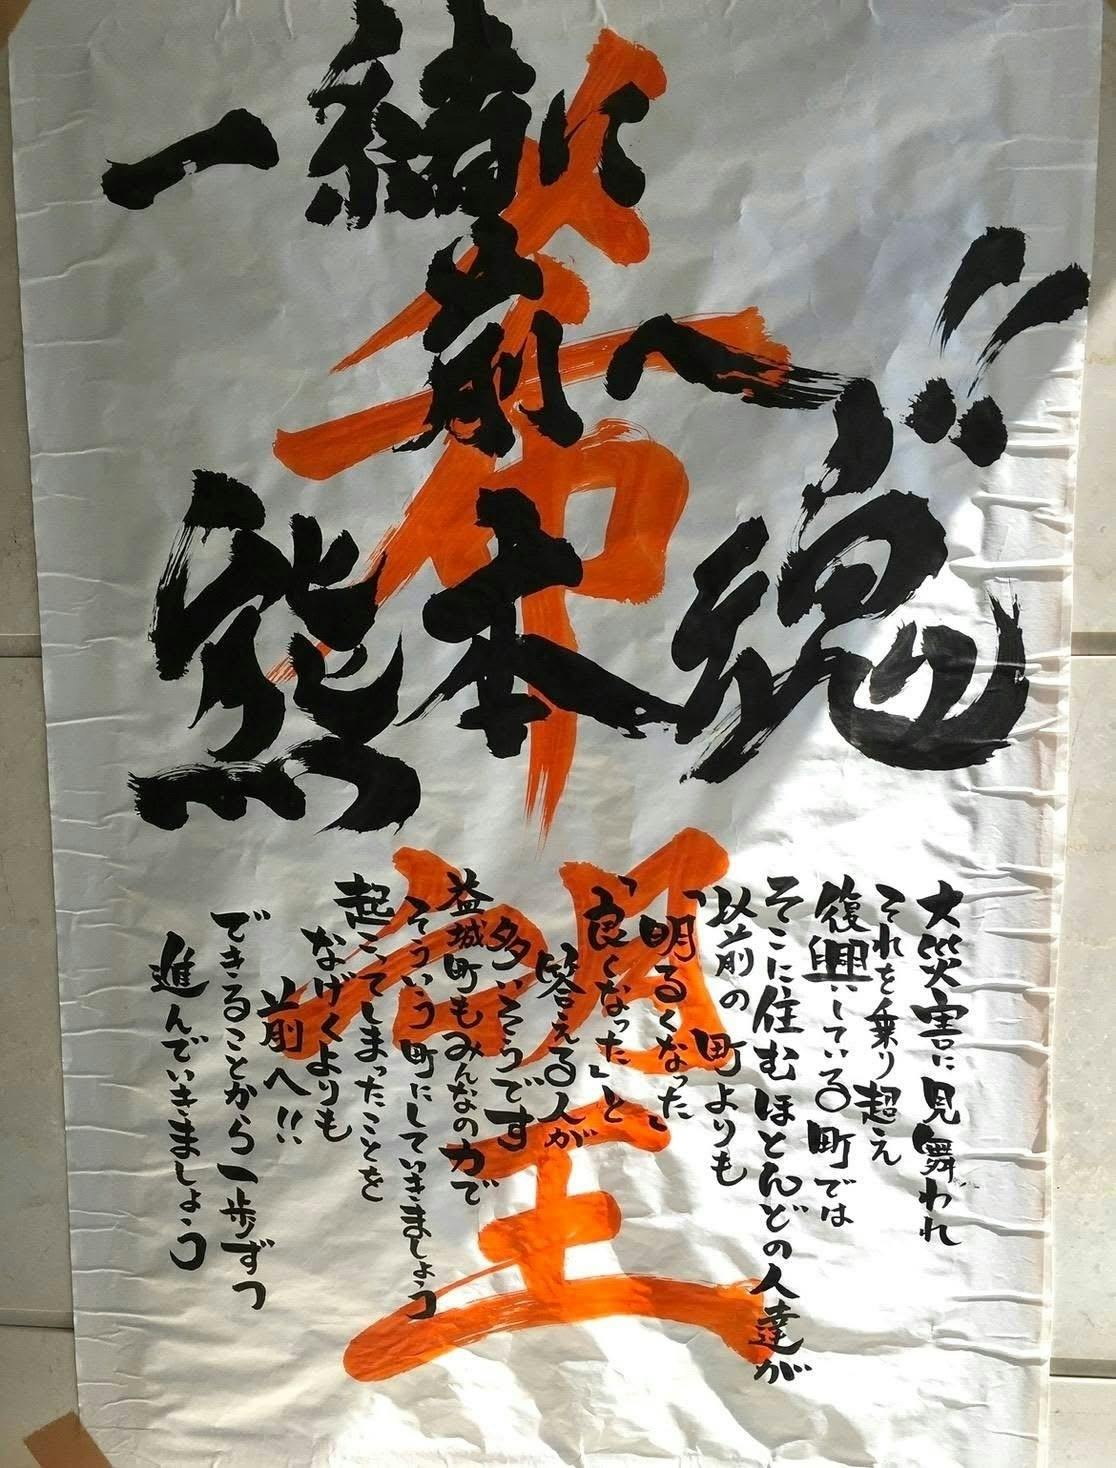 一緒に
前へ!!
熊本魂
希望
大災害に見舞われ
それを乗り超え
復興している町では
そこに住むほとんどの人達が
以前の町よりも
「明るくなった」
「良くなった」と
答える人が
多いそうです
益城町もみんなの力で
そういう町にしていきましょう
起こってしまったことを
なげくよりも
前へ!!
できることから一歩ずつ
進んでいきましょう